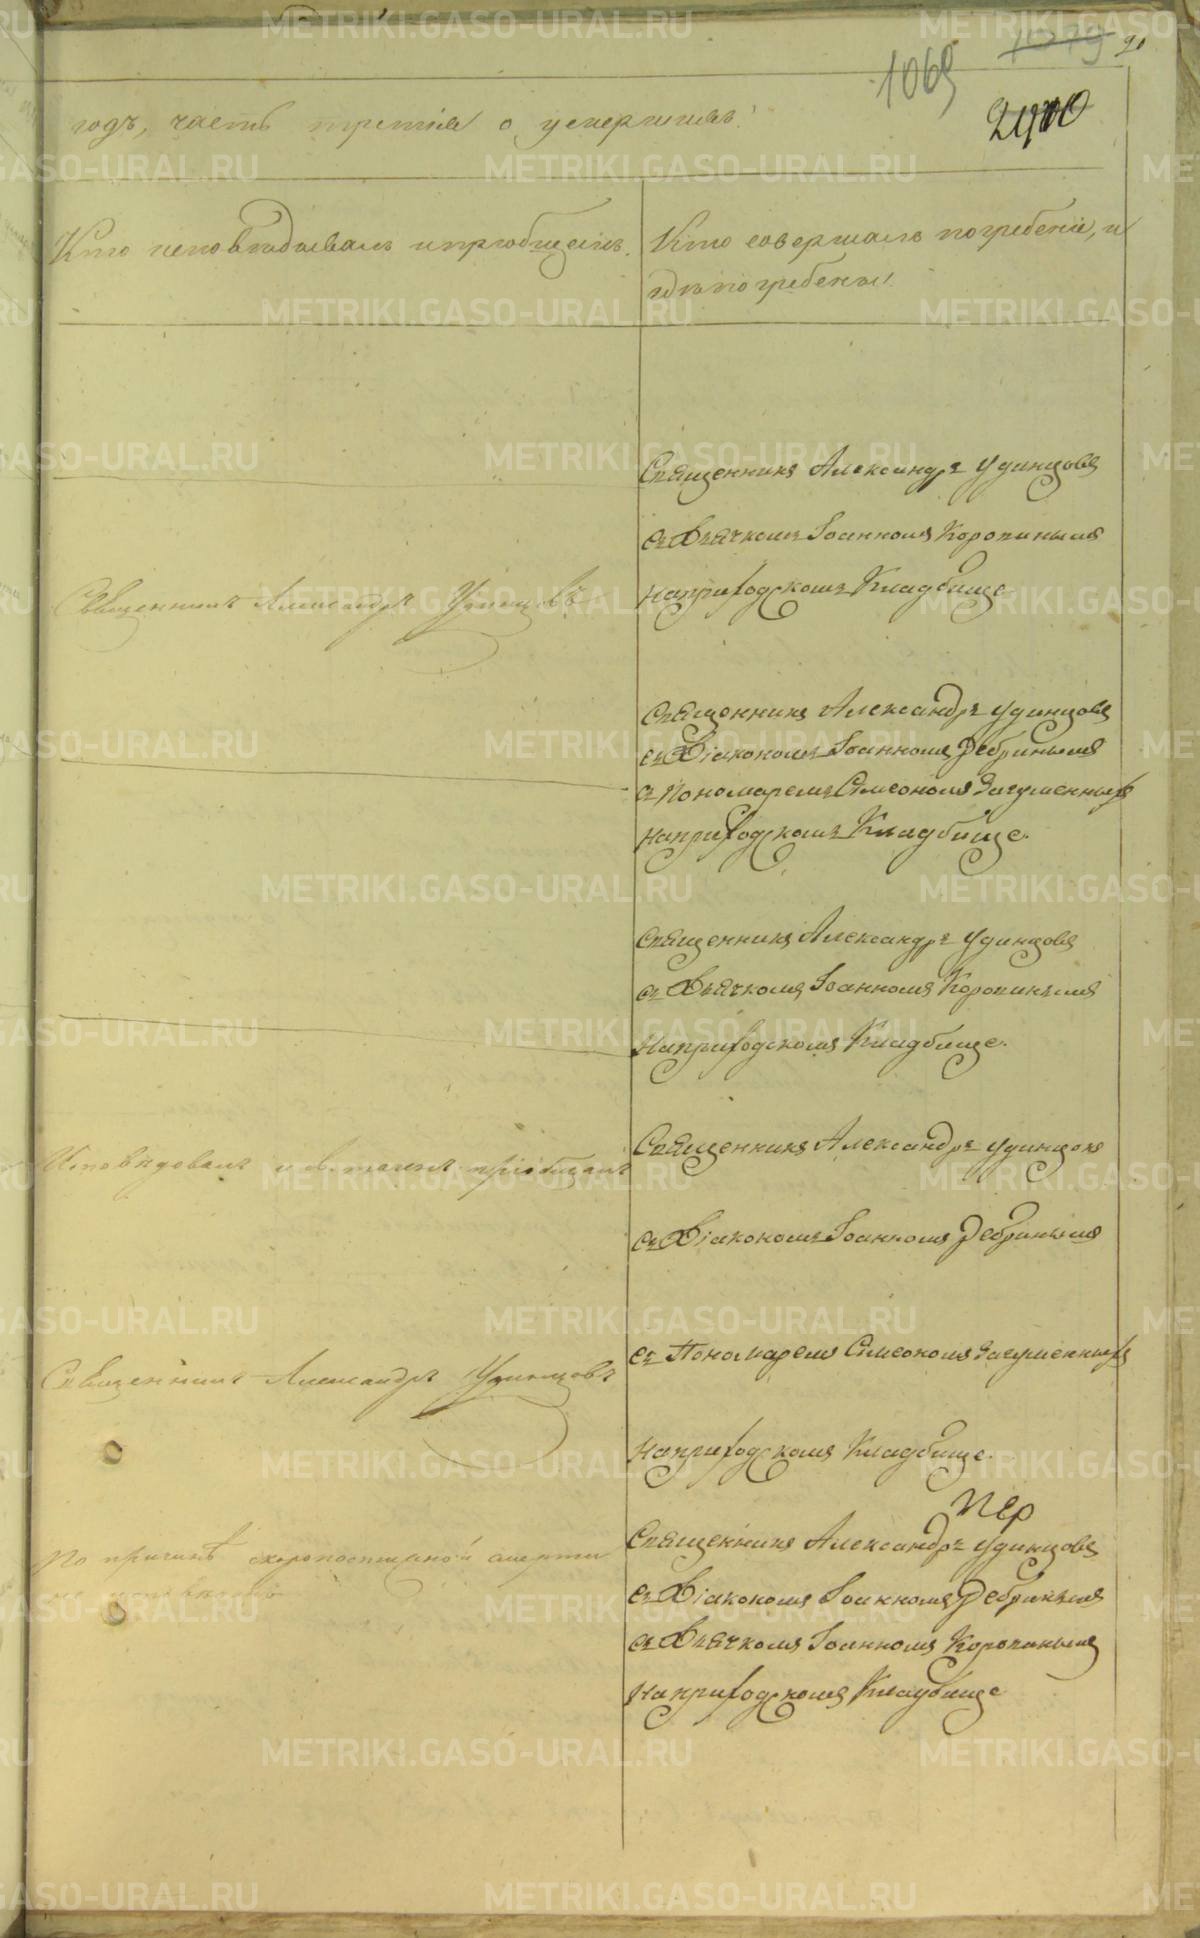 1069
20
годъ, часть третія о умершихъ.
Кто исповѣдывалъ и пріобщалъ.
Кто совершалъ погребеніе, и
гдѣ погребены.
Священникъ Александръ Удинцовъ
съ Дьячкомъ Іоанномъ Коропинымъ
на приходскомъ Кладбище.
Священникъ Александръ Удинцовъ
Священникъ Александръ Удинцовъ
съ Діакономъ Іоанномъ Дебринымъ
съ Пономаремъ Симеономъ Загуменныхъ
на приходскомъ Кладбище.
Священникъ Александръ Удинцовъ
съ Дьячкомъ Іоанномъ Коропинымъ
На приходскомъ Кладбище.
Исповѣдовалъ и св. таинъ пріобщалъ
Священникъ Александръ Удинцовъ
Священникъ Александръ Удинцовъ
съ Діакономъ Іоанномъ Дебринымъ
съ Пономаремъ Симеономъ Загуменныхъ
На приходскомъ Кладбище.
По причинѣ скоропостижной смерти
не
пер
Священникъ Александръ Удинцовъ
съ Діакономъ Іоанномъ Дебринымъ
съ Дьячкомъ Іоанномъ Коропинымъ
На приходскомъ Кладбище